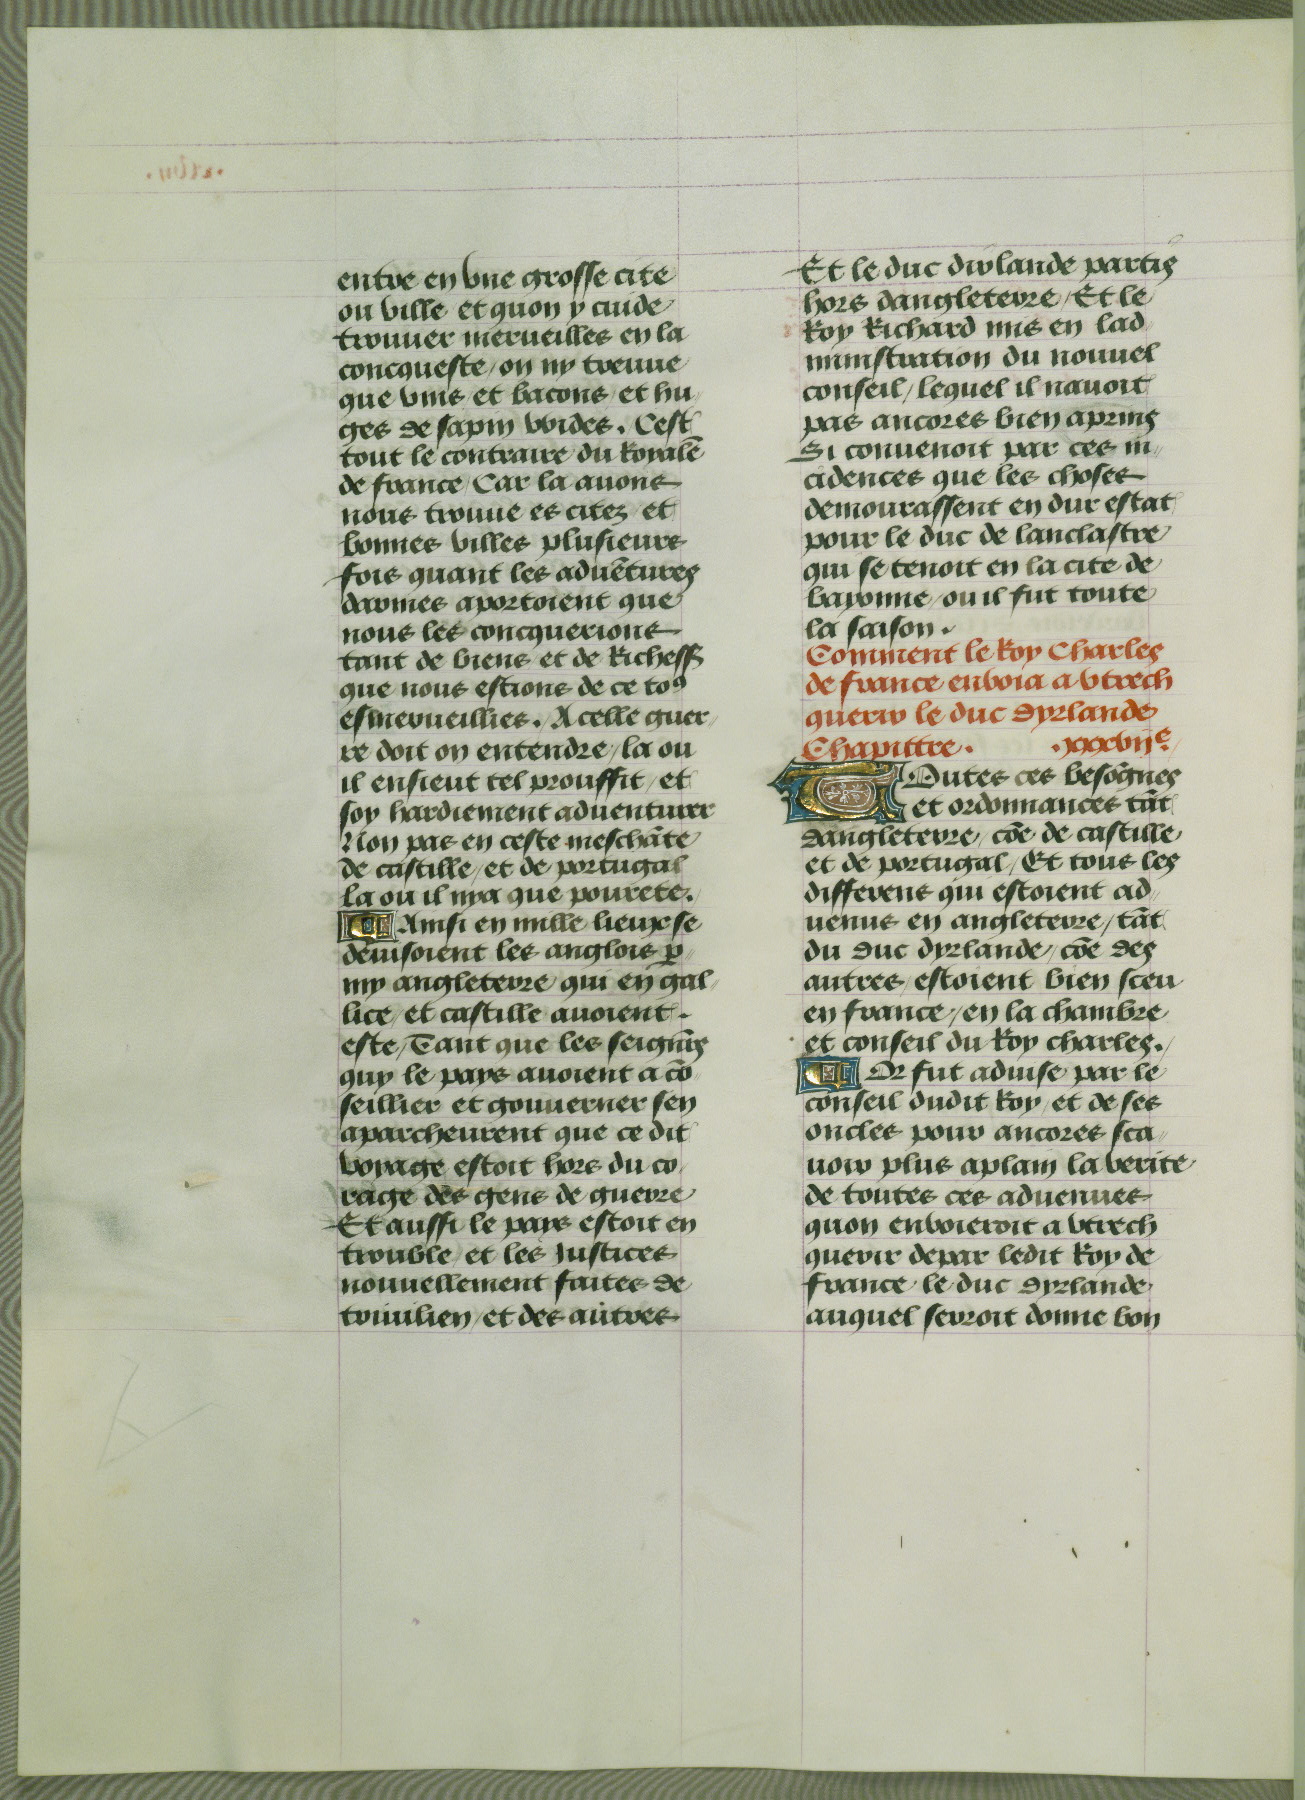 entre en vne grosse cite
ou ville et quon y cuide
trouuer merueilles en la
concqueste / on ny treuue
que vins et bacons / et hu
ges de sapin vvides. Cest
tout le contraire du Royalẽ
de france / Car la auons
nous trouue es citez et
bonnes villes plusieurs
fois quant les aduẽtures
darmes aportoient que
nous les concquerions
tant de biens et de Richess
que nous estions de ce toꝰ
esmerueillies. A celle guer
re doit on entendre / la ou
il ensieut tel prouffit / et
soy hardiement aduenturer
Non pas en ceste meschãte
de castille / et de portugal
la ou il nya que pourete.
Ainsi en mille lieux se
deuisoient les anglois ꝑ
my angleterre qui en gal
lice / et castille auoient.
este / Tant que les seignr̃s
quy le pays auoient a cõ
seillier et gouuerner sen
aparcheurent que ce dit
voyage estoit hors du co
rage des gens de guerre
Et aussi le pays estoit en
trouble / et les Justices
nouuellement faites de
triuilien / et des autres
Et le duc dirlande partis
hors dangleterre / Et le
Roy Richard mis en lad
ministration du nouuel
conseil / lequel il nauoit
pas ancores bien aprins
Si conuenoit par ces in
cidences que les choses
demourassent en dur estat
pour le duc de lanclastre
qui se tenoit en la cite de
bayonne / ou il fut toute
la saison.
Comment le Roy Charles
de france enuoia a vtrech
querir le duc dyrlande
Chapittre. .xxxvijͤ.
Toutes ces besoignes
et ordonnances tãt
dangleterre / cõe de castille
et de portugal / Et tous les
differens qui estoient ad
uenus en angleterre / tãt
du duc dyrlande / cõe des
autres / estoient bien sceu
en france / en la chambre
et conseil du Roy charles.
Or fut aduise par le
conseil dudit Roy / et de ses
oncles pour ancores sca
uoir plus aplain la verite
de toutes ces aduenues
quon enuoieroit a vtrech
querir depar ledit Roy de
france le duc dyrlande
auquel serroit donne bon